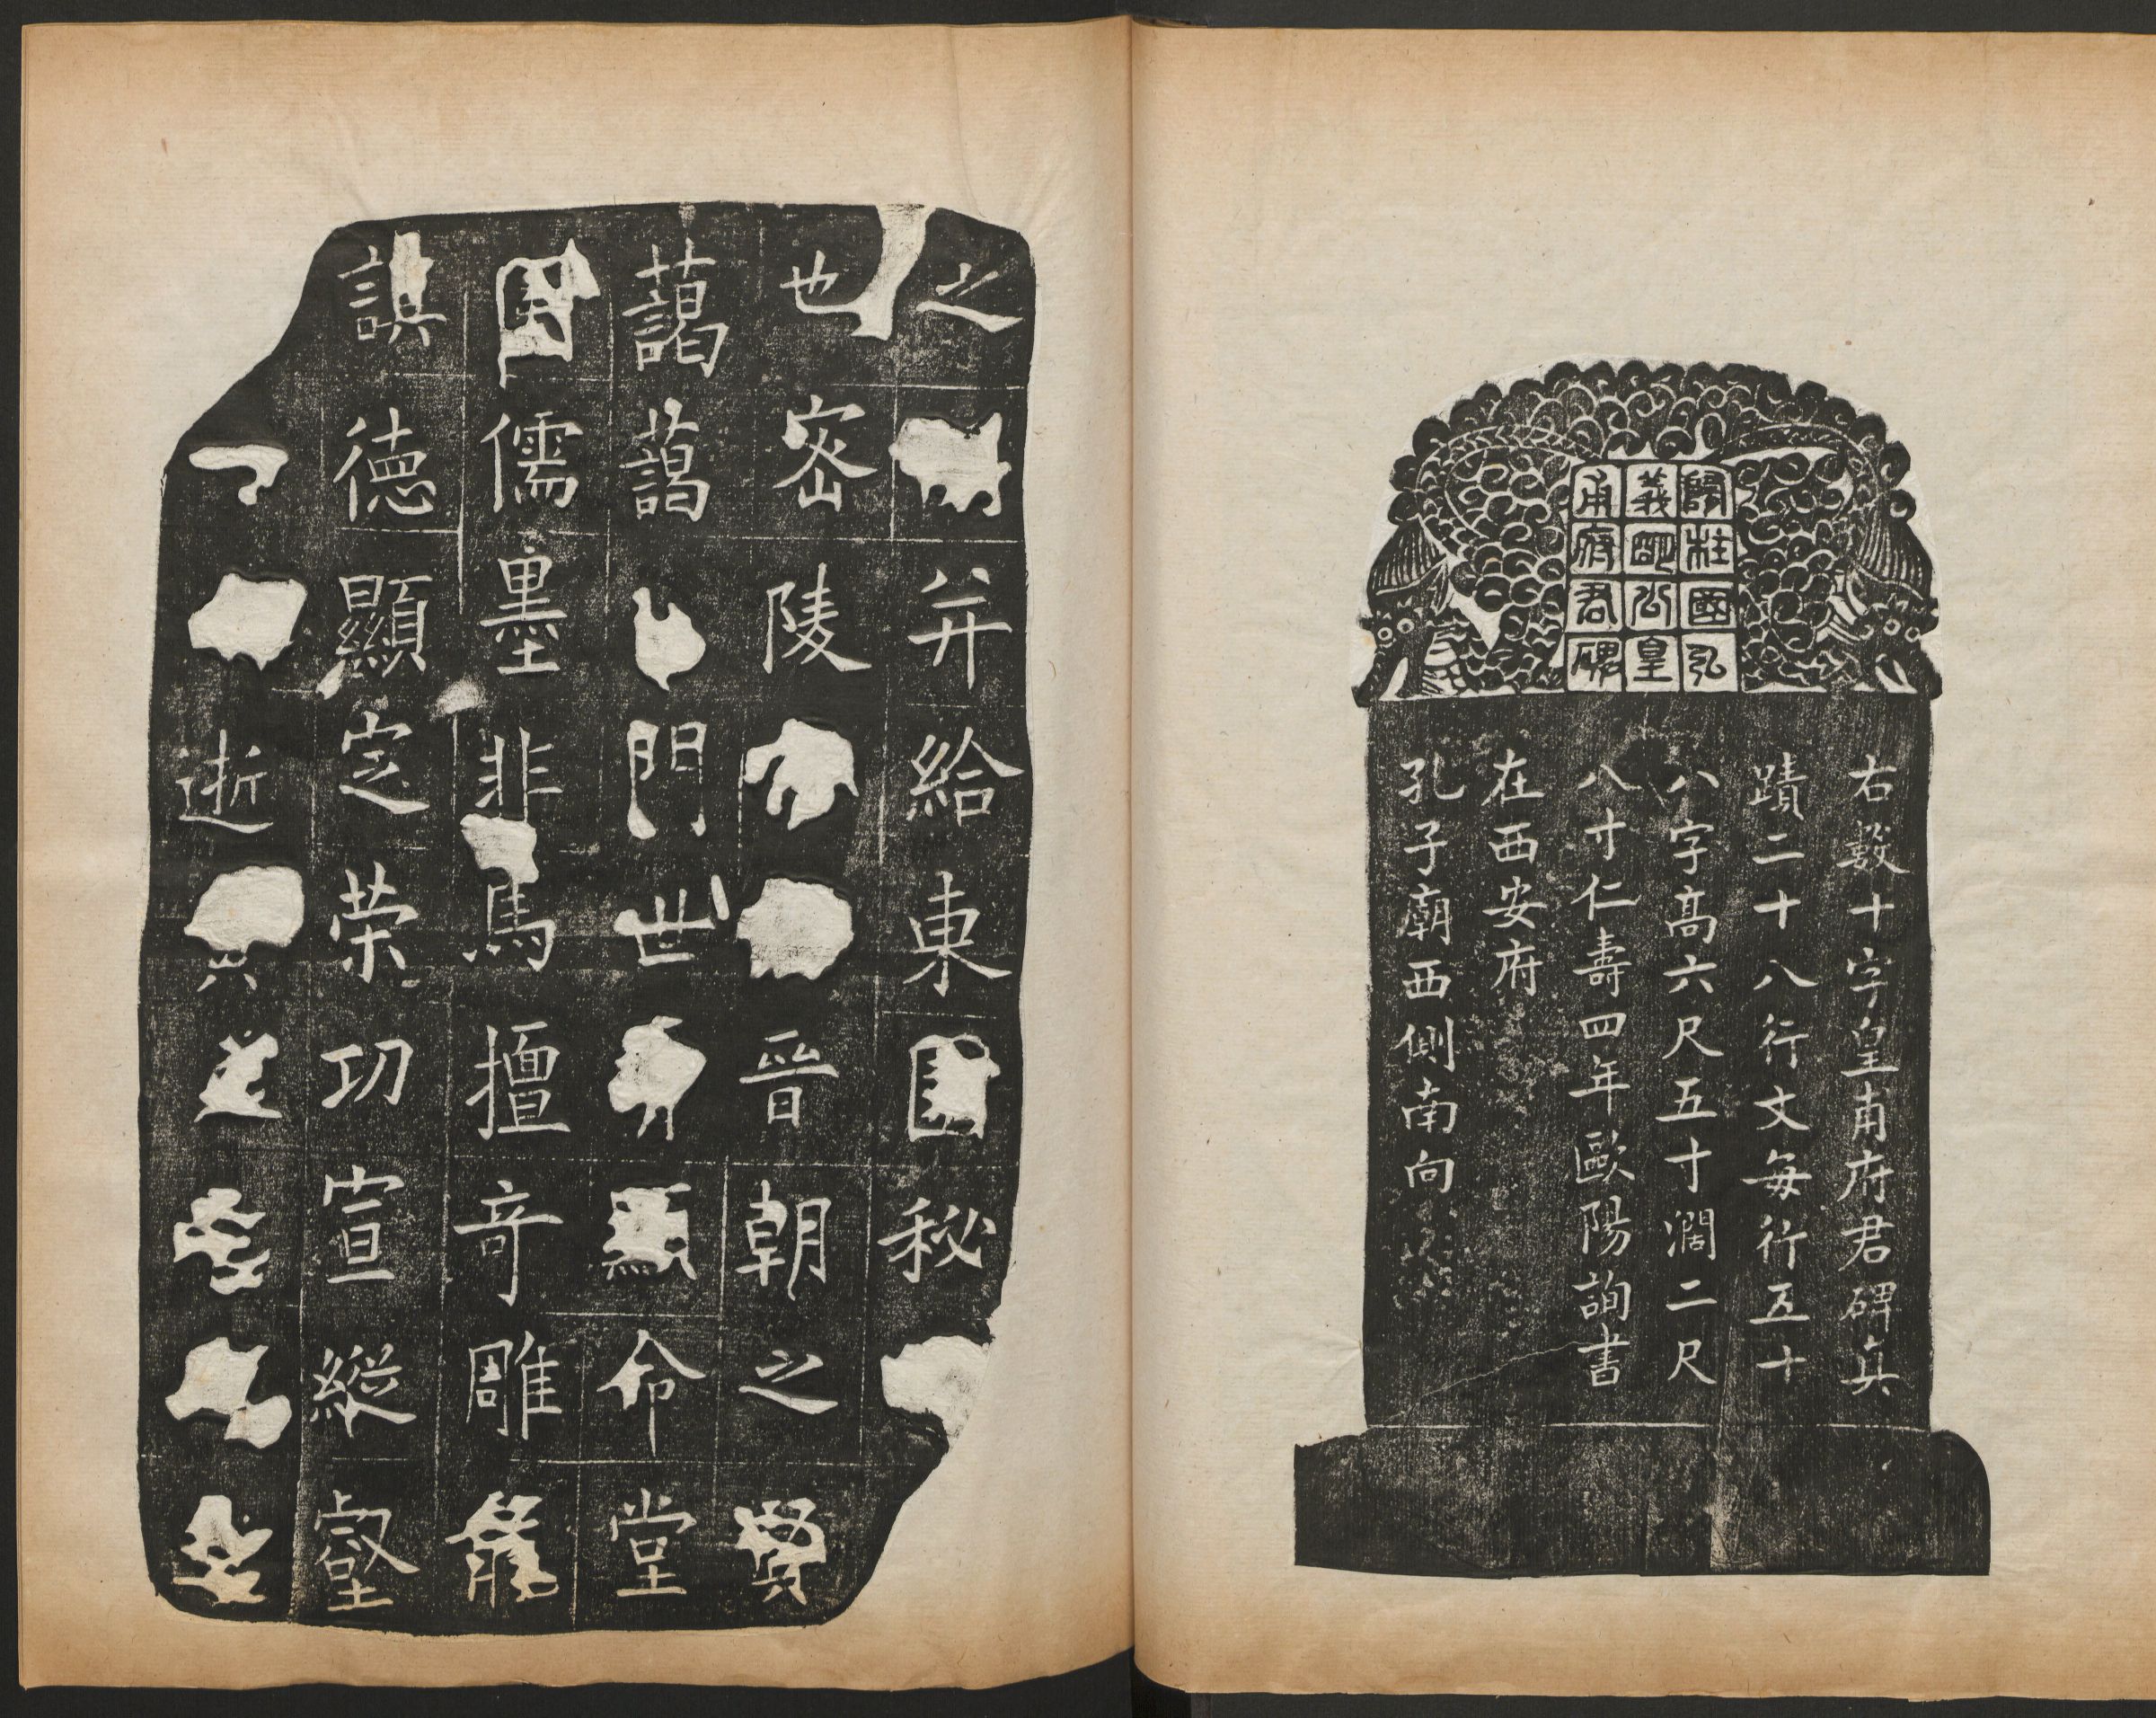 隨柱國弘
義明公皇
甫府君碑
右數十字皇甫府君碑真
蹟二十八行文每行五十
八字高六尺五寸濶二尺
八寸仁壽四年歐陽詢書
在西安府
孔子廟西側南向
之并給東秘
也密陵晉朝之賢
藹藹門世顯命堂
儒墨非馬擅奇雕龍
謨德顯定榮功宣縱壑
逝